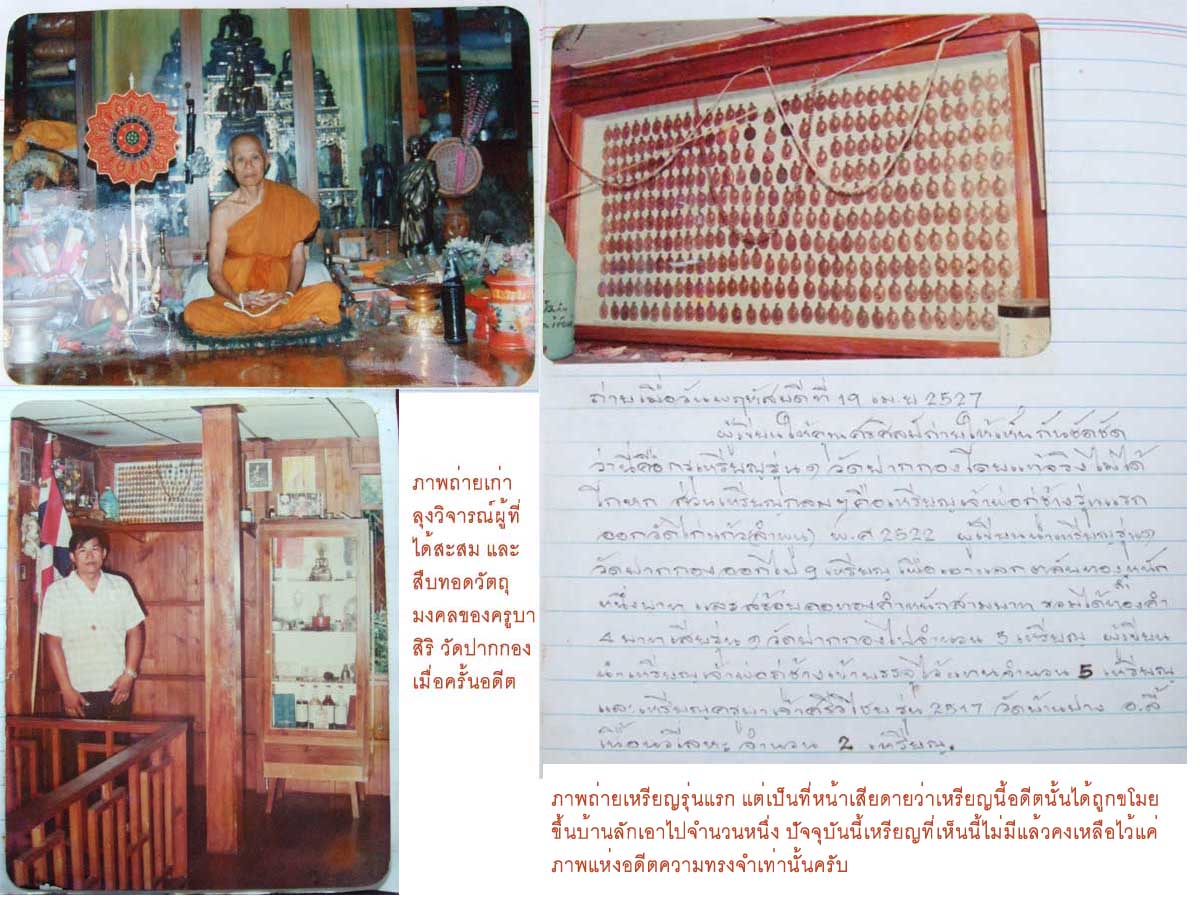 ภาพถ่ายเก่า
ลุงวิจารณ์ผู้ที่
ได้สะสม และ
สืบทอดวัตถุ
มงคลของครูบา
สิริ วัดปากกอง
เมื่อครั้นอดีต
ถ่ายเมื่อวันพฤหัสบดีที่ 19 เม.ย 2527
ผู้เขียนให้คุณศรีศิลป์ถ่ายให้เห็นกันชัดชัด
ว่านี่คือ เหรียญรุ่น ๑ วัดปากกองโดยแท้จริงไม่ได้
โกหก ส่วนเหรียญกลมๆคือเหรียญเจ้าพ่อกู่ช้างรุ่นแรก
ออกวัดไก่แก้ว(ลำพูน) พ.ศ 2522 ผู้เขียนนำเหรียญรุ่น๑
วัดปากกองออกไป ๑ เหรียญ เพื่อเอาแลกตลับทองหนัก
หนึ่งบาท และสร้อยคอทองคำหนักสามบาท รวมได้ทองคำ
4 บาทเสียรุ่น ๑ วัดปากกองไปจำนวน 5 เหรียญ ผู้เขียน
นำเหรียญเจ้าพ่อกู่ช้างเข้าบรรจุไว้แทนจำนวน 5 เหรียญ
และเหรียญครูบาเจ้าศรีวิไชย รุ่น 2517 วัดบ้านปาง อ.ลี้
เนื้อนวโลหะ จำนวน 2 เหรียญ.
ภาพถ่ายเหรียญรุ่นแรก แต่เป็นที่หน้าเสียดายว่าเหรียญนี้อดีตนั้นได้ถูกขโมย
ขึ้นบ้านลักเอาไปจำนวนหนึ่ง ปัจจุบันนี้เหรียญที่เห็นนี้ไม่มีแล้วคงเหลือไว้แค่
ภาพแห่งอดีตความทรงจำเท่านั้นครับ